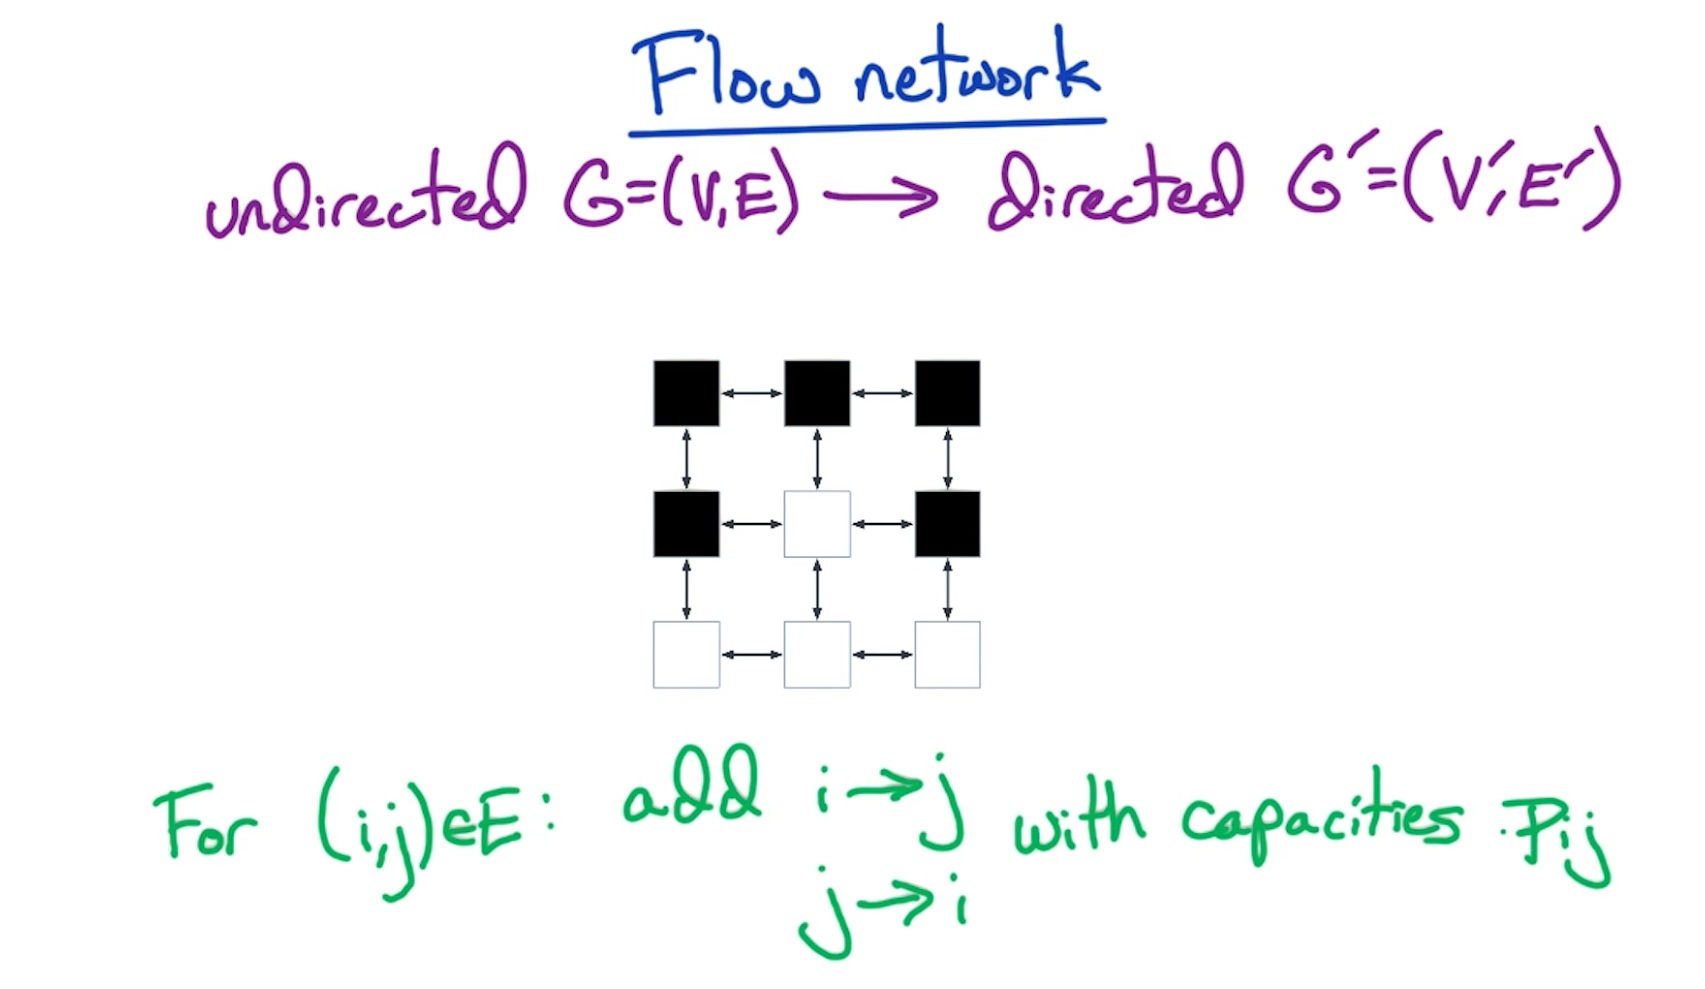 Flow network
undirected G=(V,E) → directed G′=(V′,E′)
For (i,j)∈E: add i→j with capacities Pij
j→i